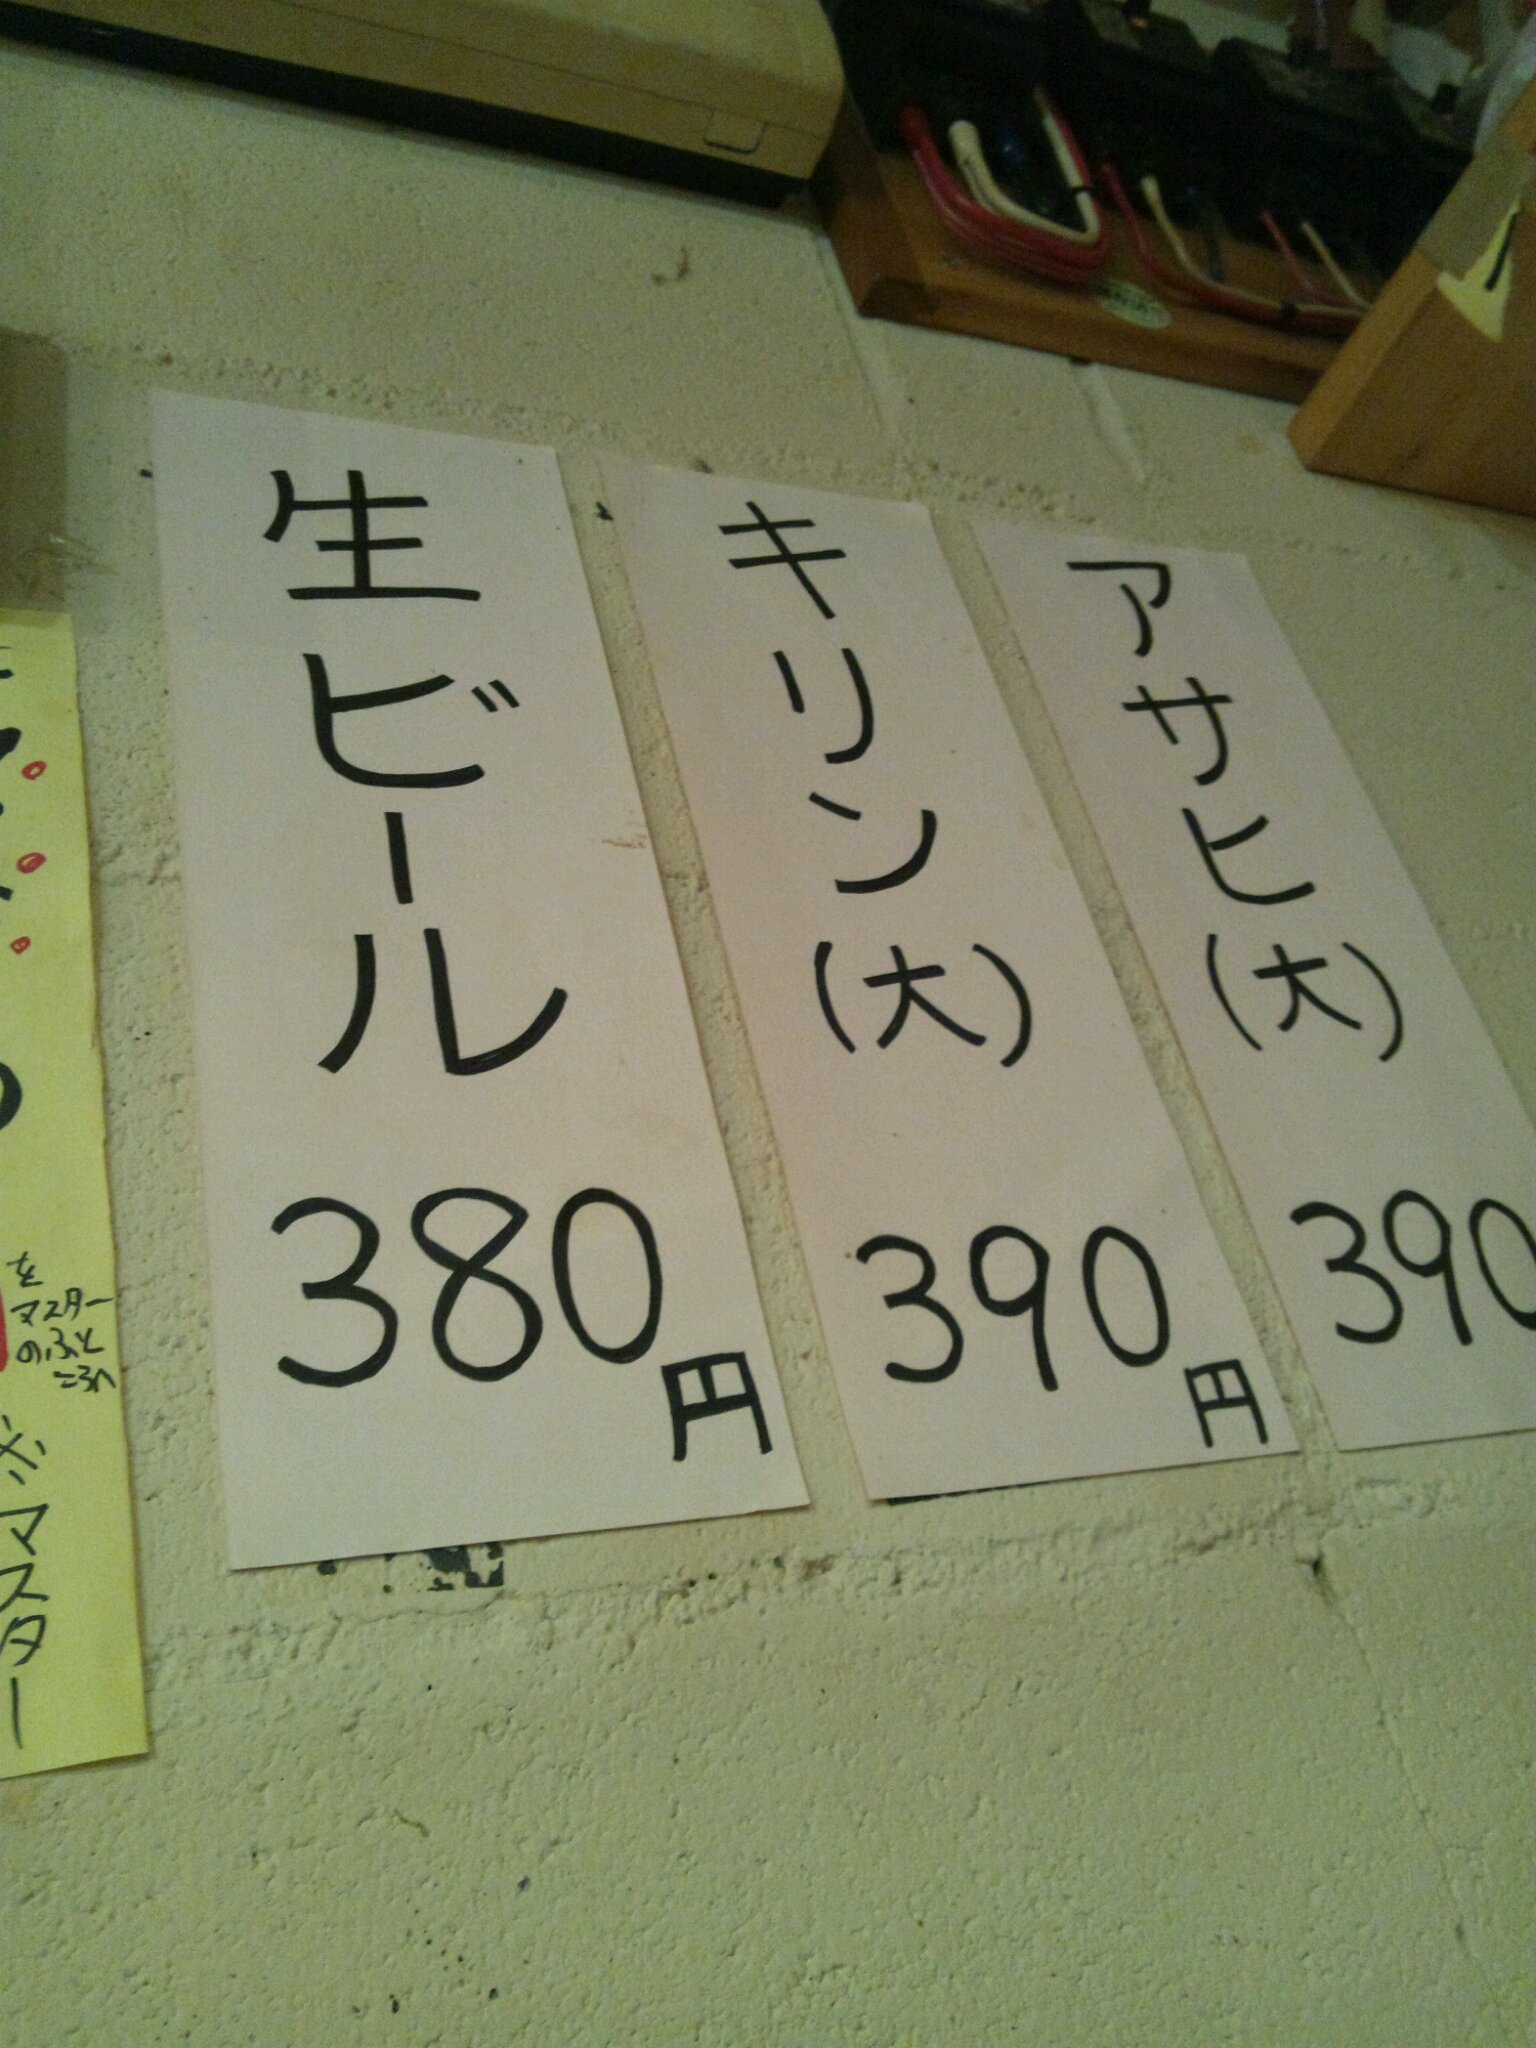 アサヒ(大)
390
キリン(大)
390円
生ビール
380円
を
マスター
のふと
ころへ
マスター